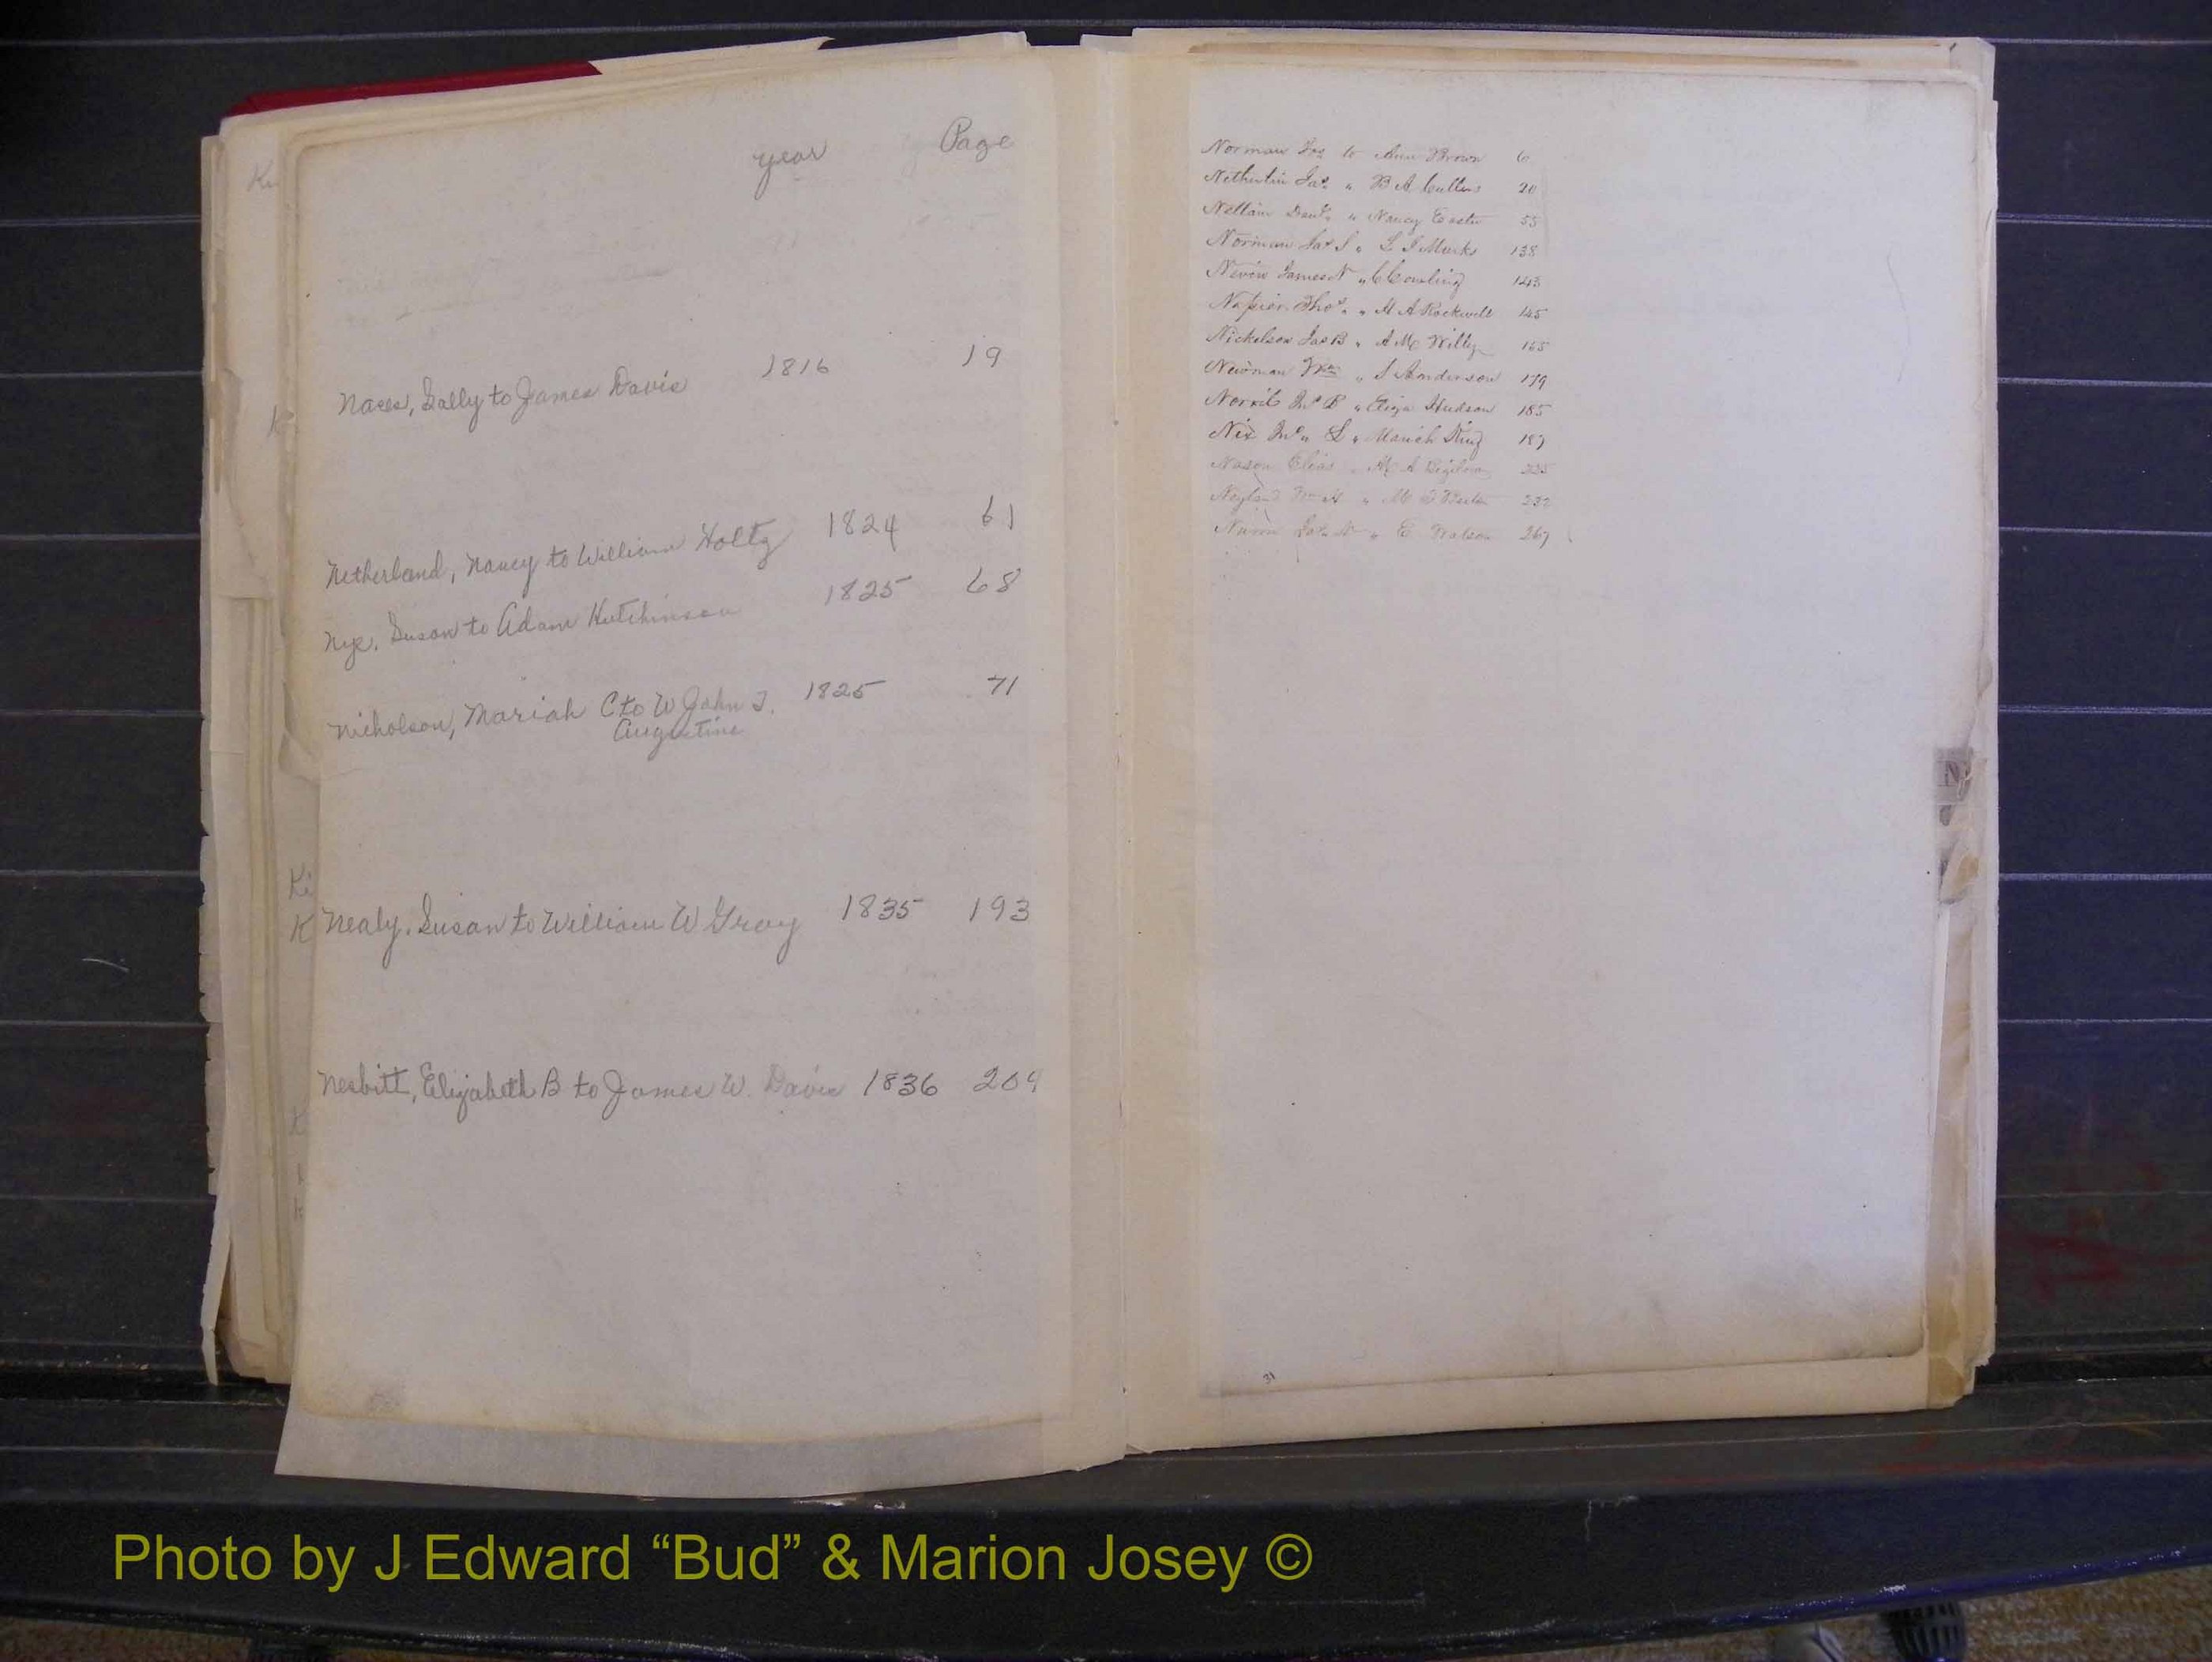 year Page
Naces, Sally to James Davis 1816 19
Netherland, Nancy to William Holtz 1824 61
Nye, Susan to Adam Hutchinson 1825 68
Nicholson, Mariah C to W John J. 1825 71
Augustine
Nealy, Susan to William W Gray 1835 193
Nesbitt, Elizabeth B to James W. Davis 1836 209
Norman Jas to Ann Brown 6
Jas. " B A Cullens 20
" Nancy Easter 55
Norman Jas J " L J Murks 138
Nevin James N " C Cowling 143
Napier Thos. " H A Rockwell 145
Nickelson Jas B " A M 165
Newman Wm " S Anderson 179
B " Eliza Hudson 185
Nix Jno. L " Mariah King 187
Nason Elias " M A Bigelow 225
Wm H " M 232
" E. Watson 267
31
N
Ku
K
Ki
K
K
Photo by J Edward “Bud” & Marion Josey ©